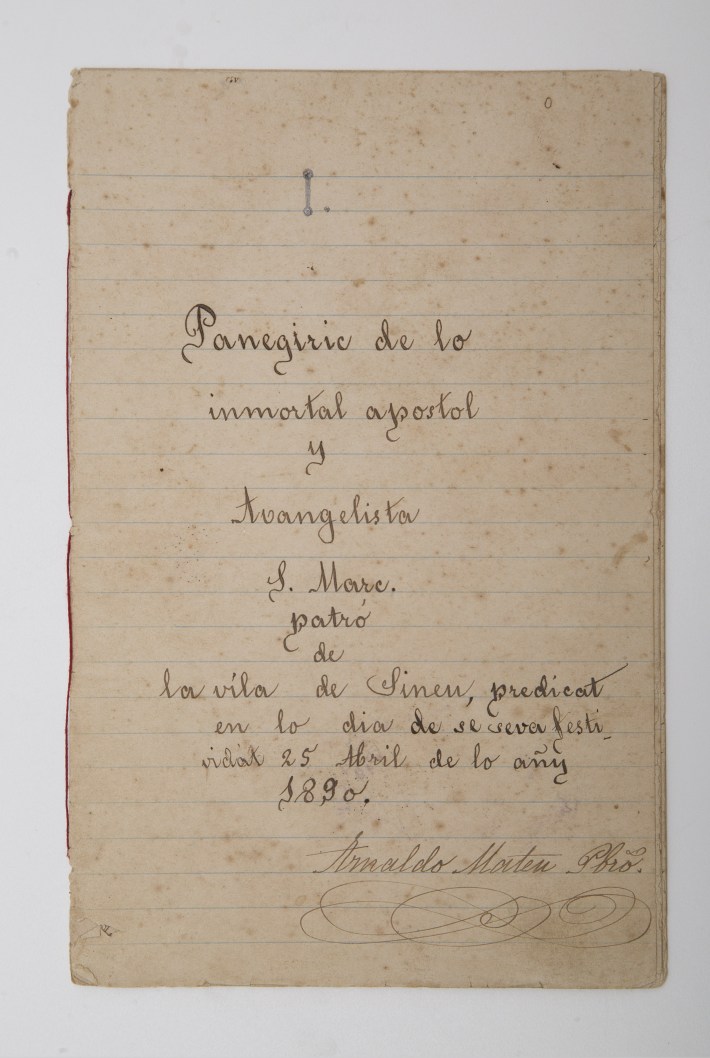 Panegiric de lo
inmortal apostol
y
Avangelista
S. Marc.
patró
de
la víla de Sineu, predicat
en lo dia de se seva festi-
vidat 25 Abril de lo añy
1890.
Arnaldo Mateu Pbro.